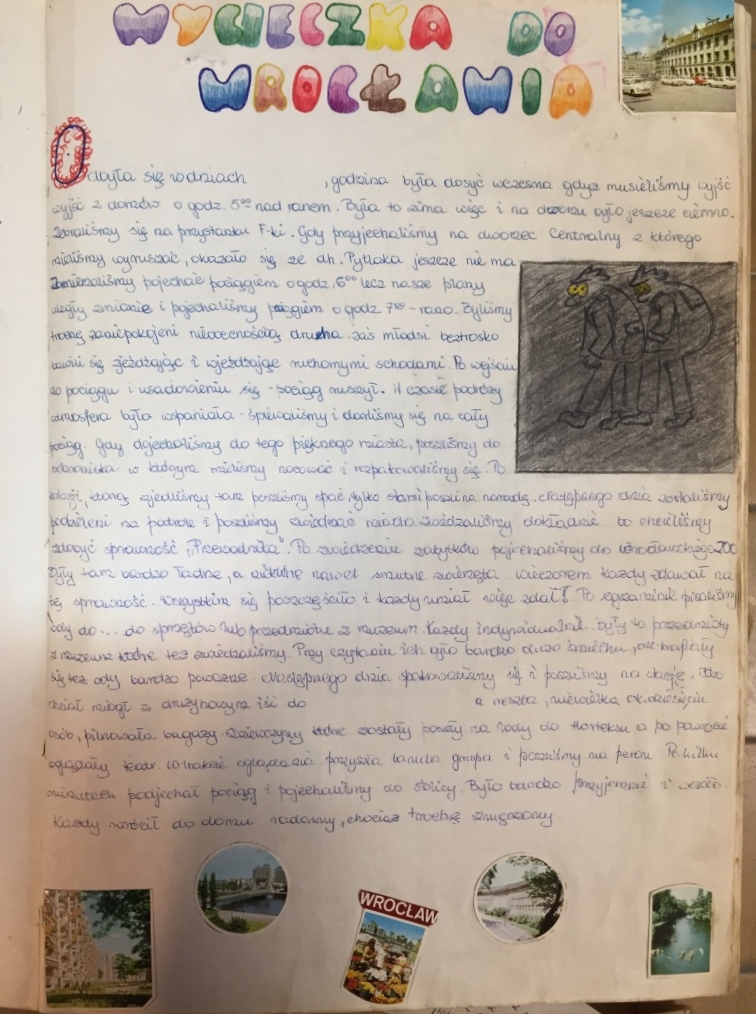 WYCIECZKA DO
WROCŁAWIA
Odbyła się w dniach , godzina była dosyć wczesna gdyż musieliśmy wyjść
wyjść z domów o godz. 5⁰⁰ nad ranem. Była to zima więc i na dworzu było jeszcze ciemno.
Zebraliśmy się na przystanku F-ki. Gdy przyjechaliśmy na dworzec Centralny z którego
mieliśmy wyruszać, okazało się że dh. Pytlaka jeszcze nie ma
Zamierzaliśmy pojechać pociągiem o godz. 6⁰⁰ lecz nasze plany
uległy zmianie i pojechaliśmy pociągiem o godz 7⁰⁰ - rano. Byliśmy
trochę zaniepokojeni nieobecnością druha. zaś młodsi beztrosko
bawili się zjeżdżając i wjeżdżając ruchomymi schodami. Po wejściu
do pociągu i usadowieniu się - pociąg ruszył. W czasie podróży
atmosfera była wspaniała - śpiewaliśmy i darliśmy się na cały
pociąg. Gdy dojechaliśmy do tego pięknego miasta, poszliśmy do
schroniska w którym mieliśmy nocować i rozpakowaliśmy się. Po
kolacji, którą zjedliśmy tam poszliśmy spać, tylko starsi poszli na naradę. Następnego dnia zostaliśmy
podzieleni na patrole i poszliśmy zwiedzać miasto. Zwiedzaliśmy dokładnie bo chcieliśmy
zdobyć sprawność "Przewodnika". Po zwiedzeniu zabytków pojechaliśmy do wrocławskiego ZOO
Były tam bardzo ładne, a niektóre nawet smutne zwierzęta. Wieczorem każdy zdawał na
tę sprawność. Wszystkim się poszczęściło i każdy umiał więc zdał! Po egzaminie pisaliśmy
ody do... do sprzętów lub przedmiotów z muzeum. Każdy indywidualnie. Były to przedmioty
z muzeum które też zwiedzaliśmy. Przy czytaniu ich było bardzo dużo śmiechu, ale trafiały
się też ody bardzo poważne. Następnego dnia spakowaliśmy się i poszliśmy na stację. Kto
chciał mógł z drużynowym iść do a reszta, niewielka ok. dziesięciu
osób, pilnowała bagaży. Dziewczyny które zostały poszły na lody do Horteksu a po powrocie
oglądały teatr. W trakcie oglądania przyszła tamta grupa i poszliśmy na peron. Po kilku
minutach podjechał pociąg i pojechaliśmy do stolicy. Było bardzo przyjemnie i wesoło.
Każdy wrócił do domu radosny, chociaż trochę zmęczony.
WROCŁAW